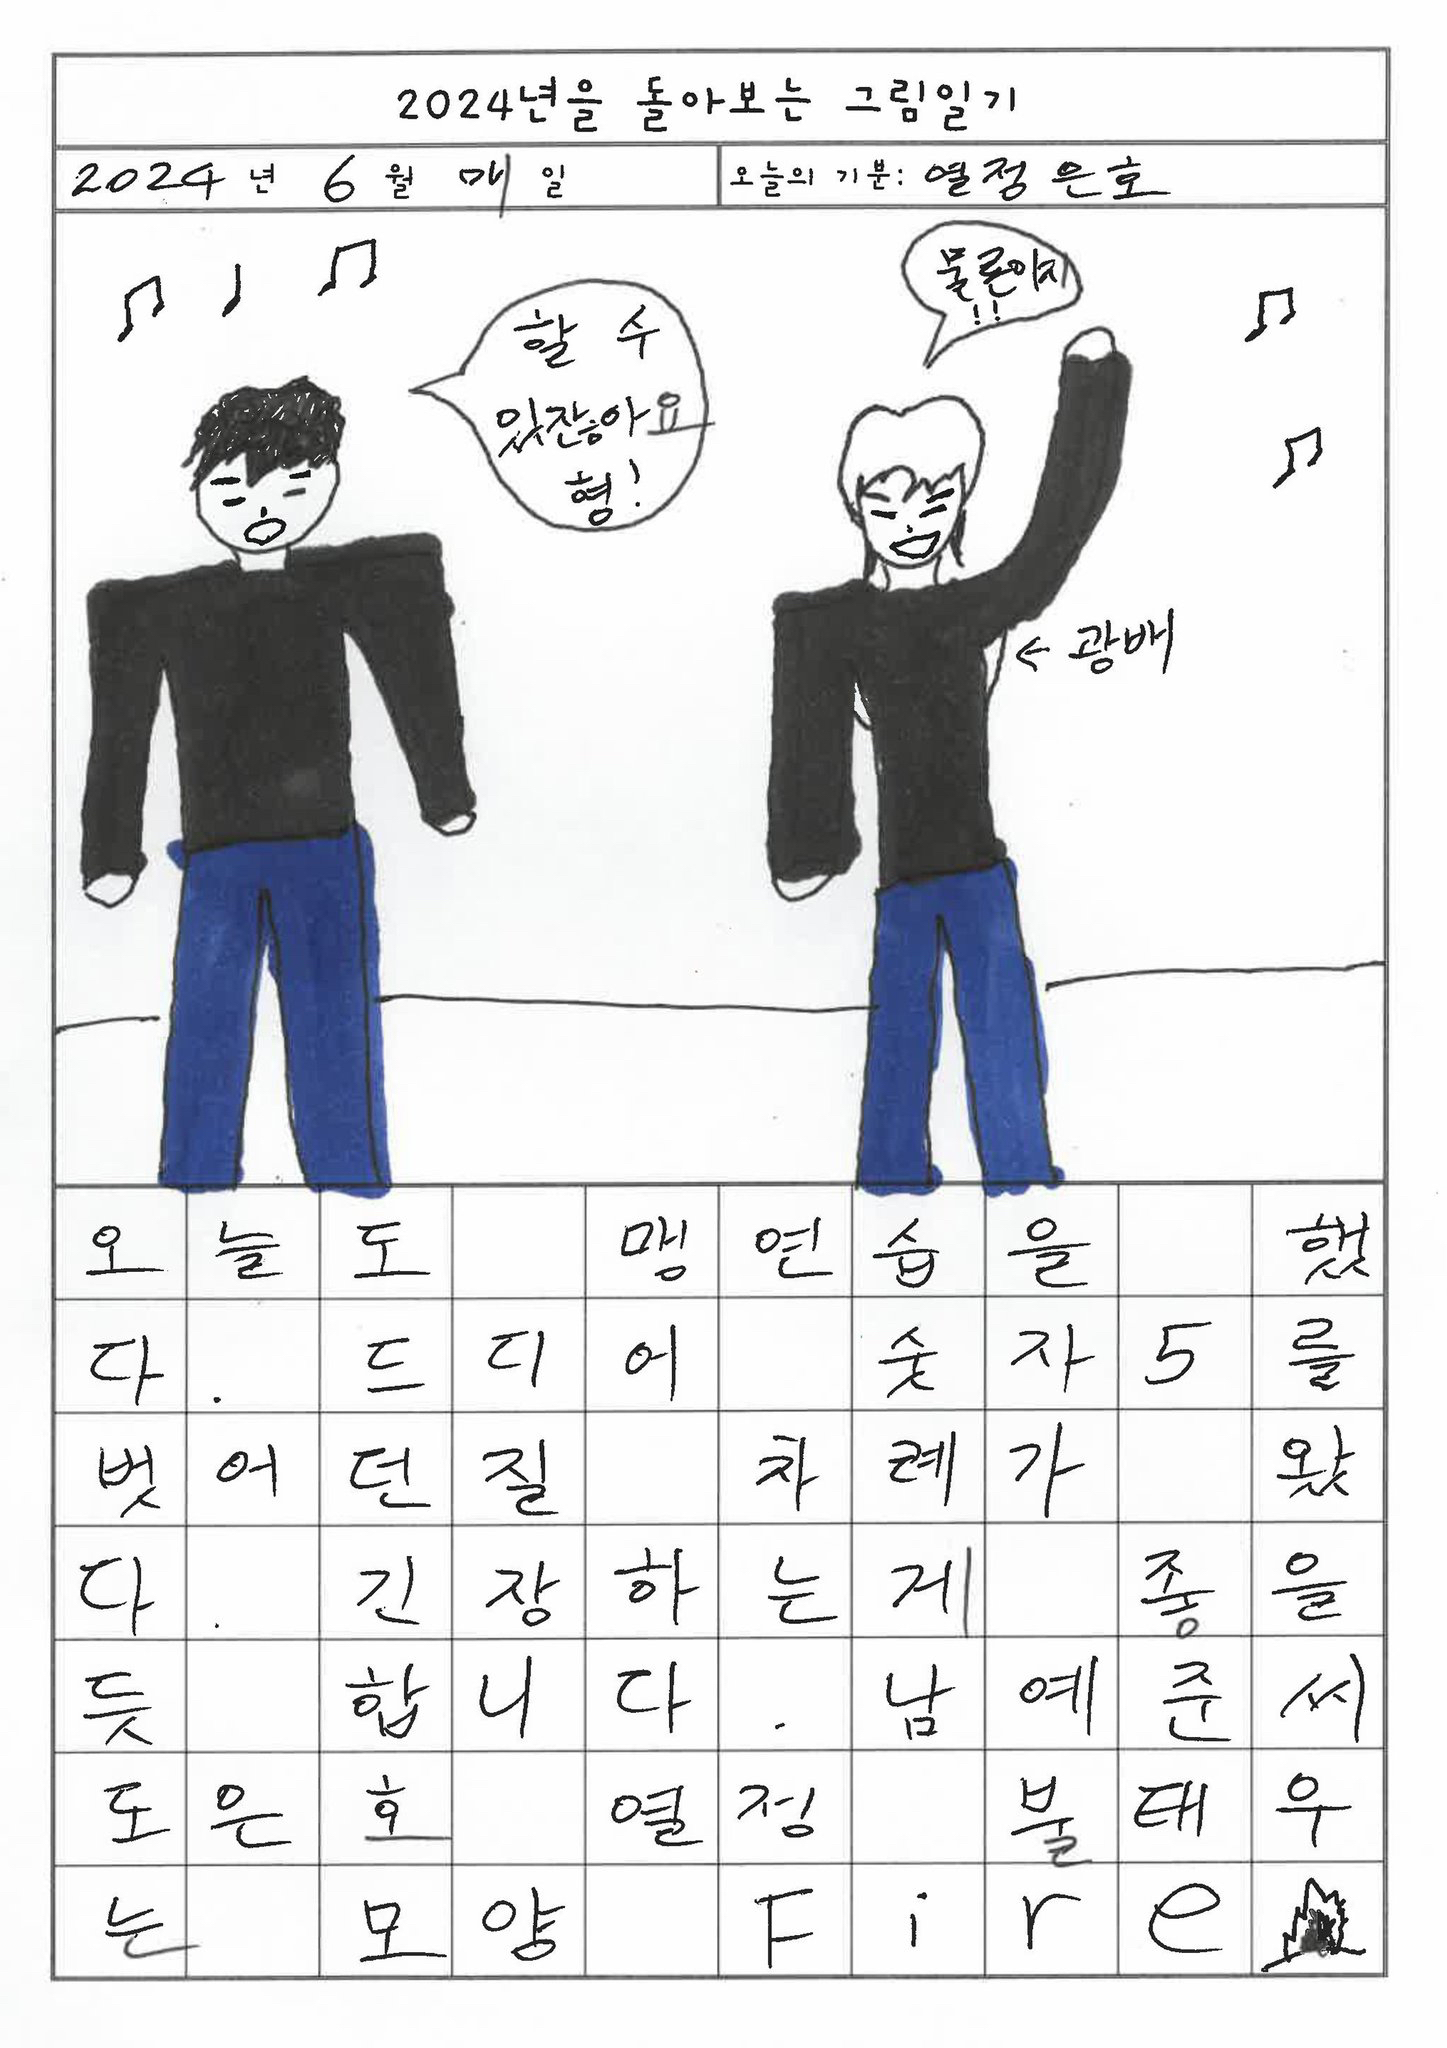 2024년을 돌아보는 그림일기
2024년 6월 매일
오늘의 기분: 열정 은호
물론이지
!!
할 수
있잖아요
형!
← 광배
오늘도 맹연습을 했
다. 드디어 숫자5를
벗어던질 차례가 왔
다. 긴장하는게 좋을
듯 합니다. 남예준씨
도은호 열정 불태우
는 모양 Fire